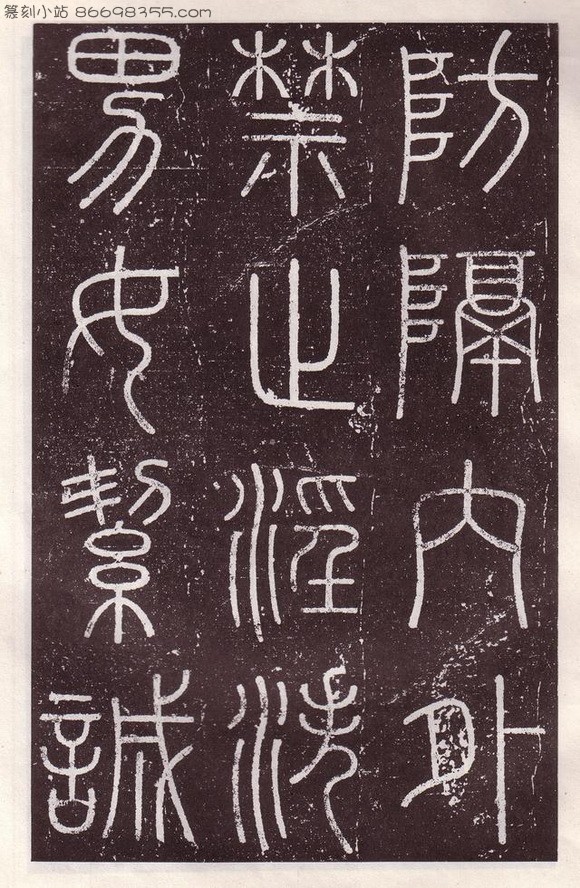 篆刻小站 86698355.com
防隔内外
禁止淫泆
男女絜誠